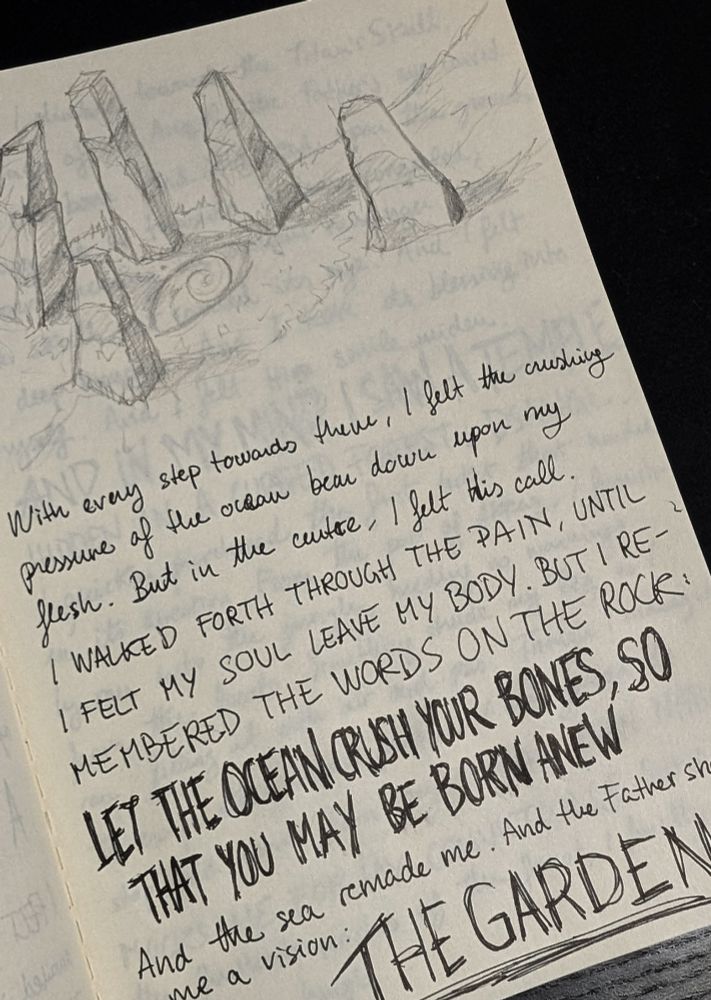 With every step towards there, I felt the crushing
pressure of the ocean bear down upon my
flesh. But in the centre, I felt this call.
I WALKED FORTH THROUGH THE PAIN, UNTIL
I FELT MY SOUL LEAVE MY BODY. BUT I RE-
MEMBERED THE WORDS ON THE ROCK:
LET THE OCEAN CRUSH YOUR BONES, SO
THAT YOU MAY BE BORN ANEW
And the sea remade me. And the Father sh
me a vision:
THE GARDEN